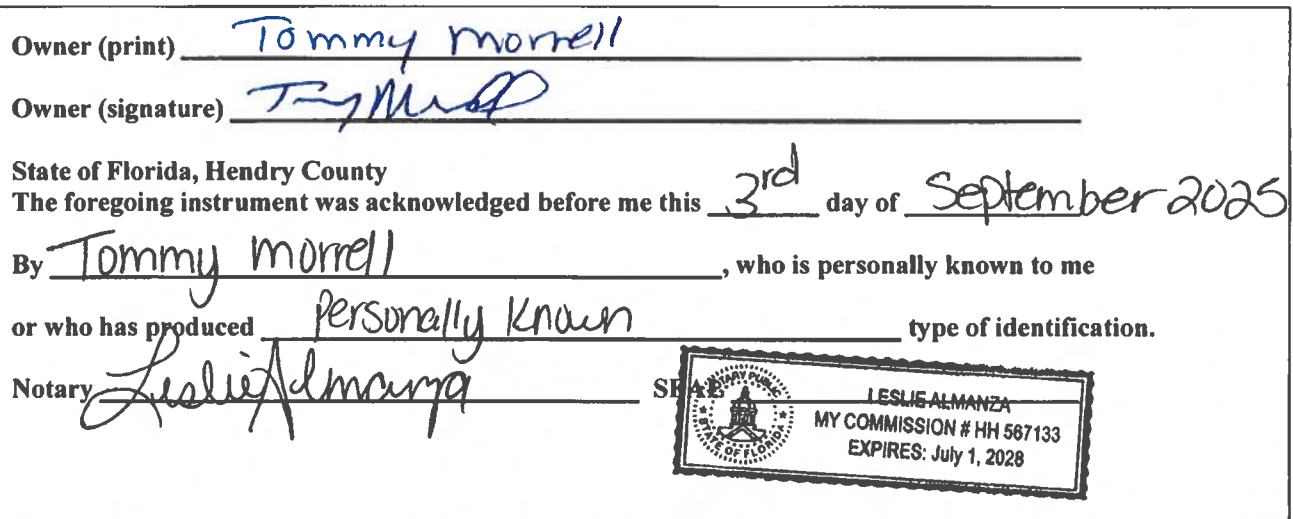 Owner (print) Tommy Morrell
Owner (signature)
State of Florida, Hendry County
The foregoing instrument was acknowledged before me this 3rd day of September 2025
By Tommy Morrell, who is personally known to me
or who has produced Personally Known type of identification.
Notary Leslie Almanza SEAL
NOTARY PUBLIC
STATE OF FLORIDA
LESLIE ALMANZA
MY COMMISSION # HH 567133
EXPIRES: July 1, 2028